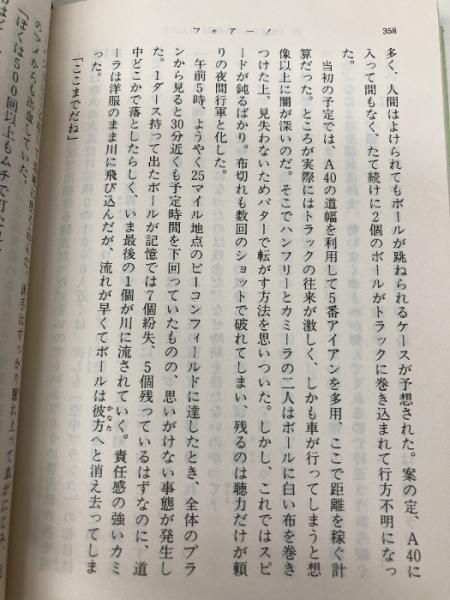 358
フォアーノ
多く、人間はよけられてもボールが跳ねられるケースが予想された。案の定、A40に
入って間もなく、たて続けに2個のボールがトラックに巻き込まれて行方不明になっ
た。
当初の予定では、A40の道幅を利用して5番アイアンを多用、ここで距離を稼ぐ計
算だった。ところが実際にはトラックの往来が激しく、しかも車が行ってしまうと想
像以上に闇が深いのだ。そこでハンフリーとカミーラの二人はボールに白い布を巻き
つけた上、見失わないためパターで転がす方法を思いついた。しかし、これではスピ
ードが鈍るばかり。布切れも数回のショットで破れてしまい、残るのは聴力だけが頼
りの夜間行軍と化した。
午前5時、ようやく25マイル地点のビーコンフィールドに達したとき、全体のプラ
ンから見ると30分近くも予定時間を下回っていたものの、思いがけない事態が発生し
た。1ダース持って出たボールが記憶では7個紛失、5個残っているはずなのに、道
中どこかで落としたらしく、いま最後の1個が川に流されていく。責任感の強いカミ
ーラは洋服のまま川に飛び込んだが、流れが早くてボールは彼方へと消え去ってしま
かなた
った。
「ここまでだね」
からも出血していた。
「ぼくは500回以上もムチで打